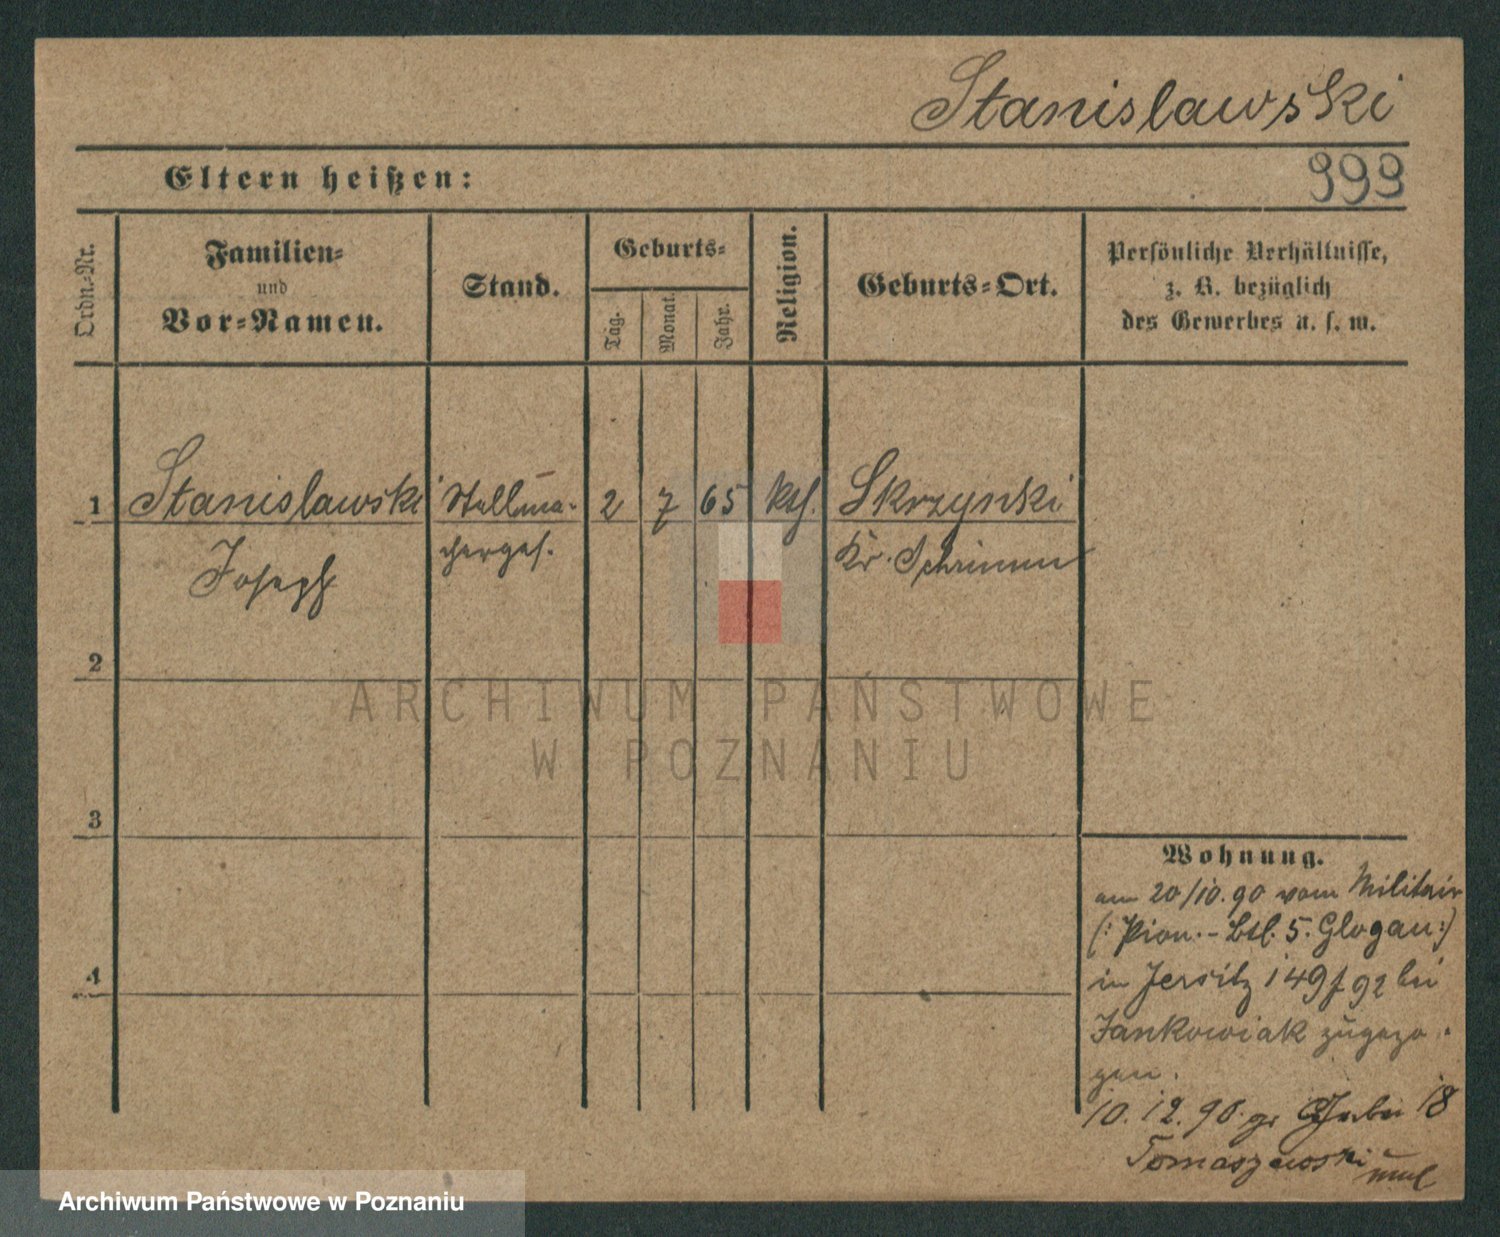 Stanislawski
Eltern heißen:
999
Ordn.-Nr.
Familien-
und
Vor-Namen.
Stand.
Geburts-
Tag.
Monat.
Jahr.
Religion.
Geburts-Ort.
Persönliche Verhältnisse,
z. B. bezüglich
des Gewerbes u. s. w.
1 Stanislawski Stellma- 2 7 65 kth. Skrzynki
Joseph cherges. Kr. Schrimm
2
ARCHIWUM PAŃSTWOWE
W POZNANIU
3
4
Wohnung.
am 20/10.90 vom Militair
(: Pion.-Btl. 5. Glogau :)
in Jersitz 149 92 bei
Jankowiak zugezo-
gen.
10.12.90. bei 18
Tomaszewski
Archiwum Państwowe w Poznaniu